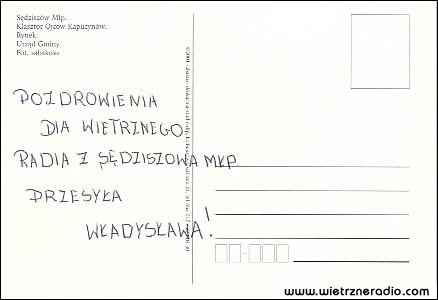 Sędziszów Młp.
Klasztor Ojców Kapucynów.
Rynek.
Urząd Gminy.
Fot. »abakus«
POZDROWIENIA
DLA WIETRZNEGO
RADIA Z SĘDZISZOWA MŁP
PRZESYŁA
WŁADYSŁAWA!
www.wietrzneradio.com